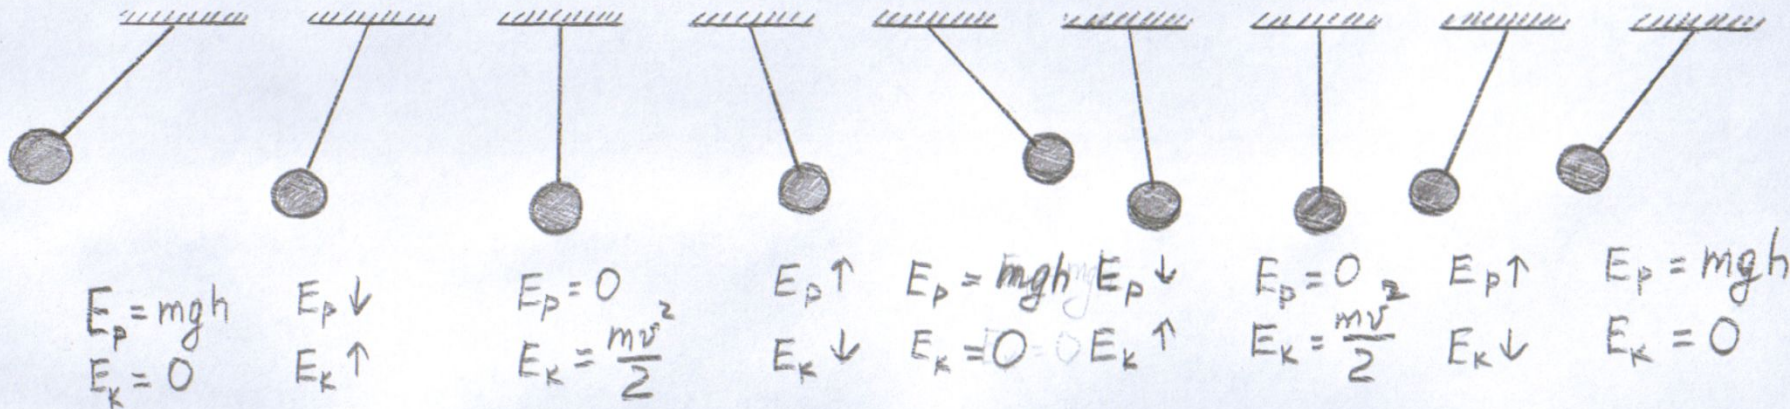 E_p = mgh
E_k = 0
E_p ↓
E_k ↑
E_p = 0
E_k = mv²/2
E_p ↑
E_k ↓
E_p = mgh
E_k = 0
E_p ↓
E_k ↑
E_p = 0
E_k = mv²/2
E_p ↑
E_k ↓
E_p = mgh
E_k = 0